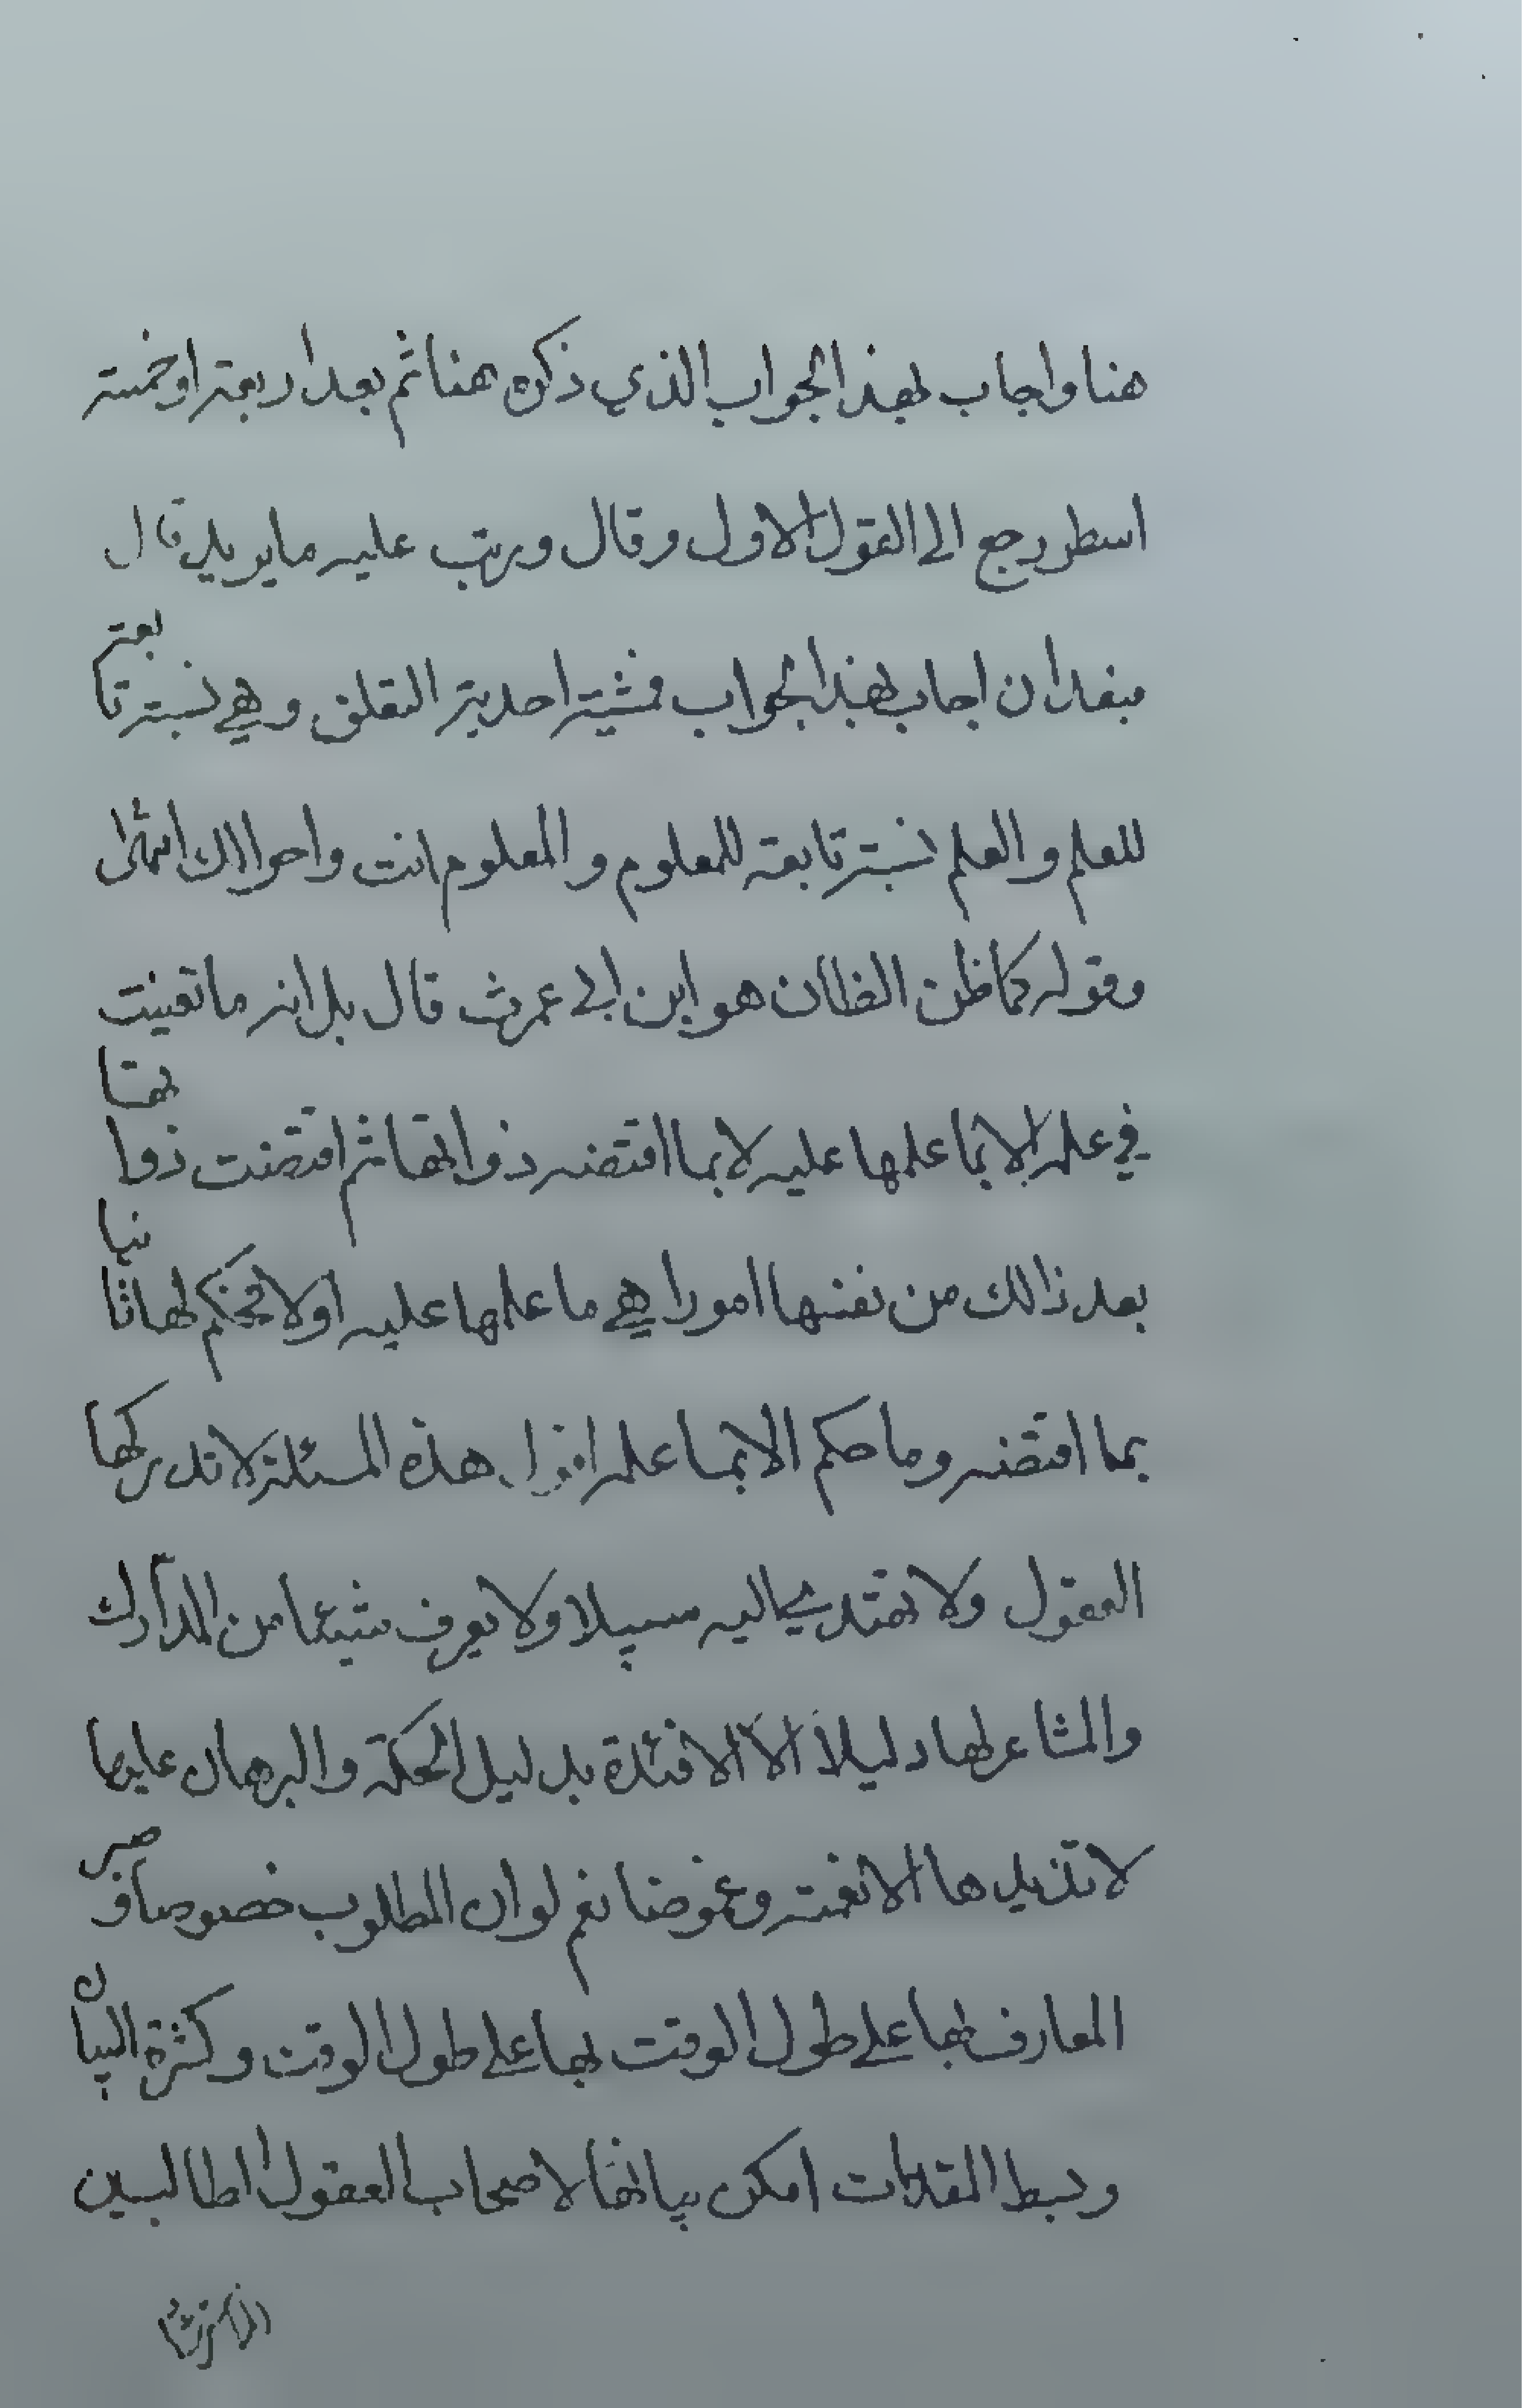 هنا واجاب بهذا الجواب الذي ذكره هنا ثم بعد اربعة او خمسة
اسطر رجع الى القول الاول وقال ورتب عليه ما يريد قال
فبعد ان اجاب بهذا الجواب فمشيته احدية التعلق وهي نسبة تابعة
للعلم والعلم نسبة تابعة للمعلوم والمعلوم انت واحوالك انتهى
وقوله كما ظن الظان هو ابن ابي عمرث قال بل انه ما تعينت
في علمه الا بما علمها عليه لا بما اقتضته ذواتها ثم اقتضت ذواتها
بعد ذالك من نفسها امورا هي ما علمها عليه اولا فحكم لها ثانيا
بما اقتضته وما حكم الا بما علمه اقول هذه المسئلة لا تدركها
العقول ولا تهتدي اليه سبيلا ولا يعرف شيئا من المدارك
والمشاعر لها دليلا الا الافئدة بدليل الحكمة والبرهان عليها
لا تزيدها الا نغمته وغموضا نعم لو ان المطلوب خصوصا قصر
المعارف بها على طول الوقت بها على طول الوقت وكثرة البيان
وبسط المقدمات امكن بيانها لاصحاب العقول اطالبين